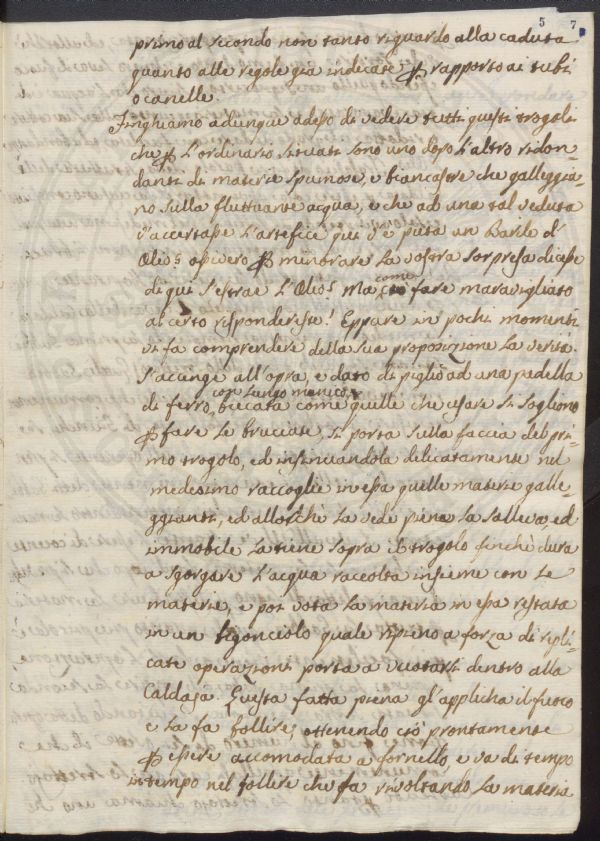 5 7
primo al secondo non tanto riguardo alla caduta
quanto alle regole già indicate ꝑ rapporto ai tubi
o canelle.
Finghiamo adunque adesso di vedere tutti questi trogoli
che ꝑ l'ordinario situati sono uno dopo l'altro ridon-
danti di materie spumose, e biancastre che galleggia-
no sulla fluttuante acqua, e che ad una tal veduta
v'accertasse l'artefice qui v'è puta un Barile d'
Olio: ovvero ꝑ minorare la vostra sorpresa dicesse
di qui s'estrae l'Olio: Ma, come fare maravigliato
al certo rispondereste! Eppure in pochi momenti
vi fa comprendere della sua proposizione la verità.
S'accinge all'opra, e dato di piglio ad una padella
di ferro, con lungo manico, bucata come quelle che usare si sogliono
ꝑ fare le bruciate, si porta sulla faccia del pri-
mo trogolo, ed insinuandola delicatamente nel
medesimo raccoglie in essa quelle materie galle-
ggianti, ed allorchè la vede piena la solleva, ed
immobile la tiene sopra il trogolo finchè dura
a sgorgare l'acqua raccolta insieme con le
materie, e poi vota la materia in essa restata
in un bigonciolo quale ripieno a forza di repli-
cate operazioni porta a vuotarsi dentro alla
Caldaja. Questa fatta piena gl'applicha il fuoco
e la fa bollire, ottenendo ciò prontamente
ꝑ essere accomodata a fornello, e va di tempo
in tempo nel bollire che fa rivoltando la materia